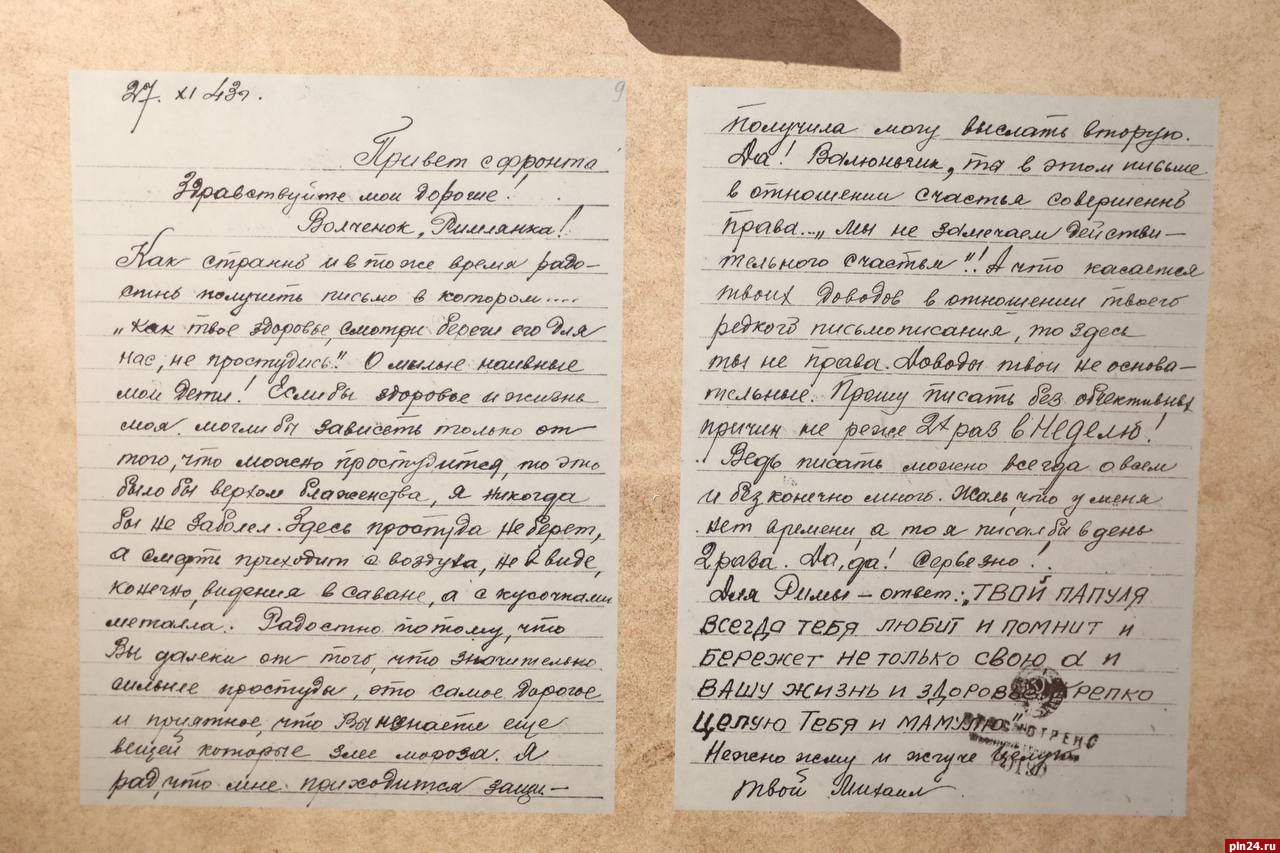 27. XI 43г.
9
Привет с фронта
Здравствуйте мои дорогие!
Волченок, Римлянка!
Как странно и в тоже время радо-
стно получить письмо в котором....
„Как твое здоровье, смотри береги его для
нас, не простудись". О милые наивные
мои дети! Если бы здоровье и жизнь
моя могли бы зависеть только от
того, что можно простудится, то это
было бы верхом блаженства, я никогда
бы не заболел. Здесь простуда не берет,
а смерть приходит с воздуха, не в виде,
конечно, видения в саване, а с кусочками
металла. Радостно потому, что
Вы далеки от того, что значительно
сильнее простуды, это самое дорогое
и приятное, что Вы не знаете еще
вещей которые злее мороза. Я
рад, что мне приходится защи-
получила могу выслать вторую.
Да! Валюньчик, ты в этом письме
в отношении счастья совершенно
права... „Мы не замечаем действи-
тельного счастья"!! А что касается
твоих доводов в отношении твоего
редкого письмописания, то здесь
ты не права. Доводы твои не основа-
тельные. Прошу писать без объективных
причин не реже 2х раз в неделю!
Ведь писать можно всегда о всем
и без конечно много. Жаль, что у меня
нет времени, а то я писал бы в день
2 раза. Да, да! Серьезно!
Для Римы – ответ: „ТВОЙ ПАПУЛЯ
ВСЕГДА ТЕБЯ ЛЮБИТ И ПОМНИТ И
БЕРЕЖЕТ НЕ ТОЛЬКО СВОЮ, А И
ВАШУ ЖИЗНЬ И ЗДОРОВЬЕ. КРЕПКО
ЦЕЛУЮ ТЕБЯ И МАМУЛЮ"
Нежно жму и жгуче целую
твой Михаил.
pln24.ru